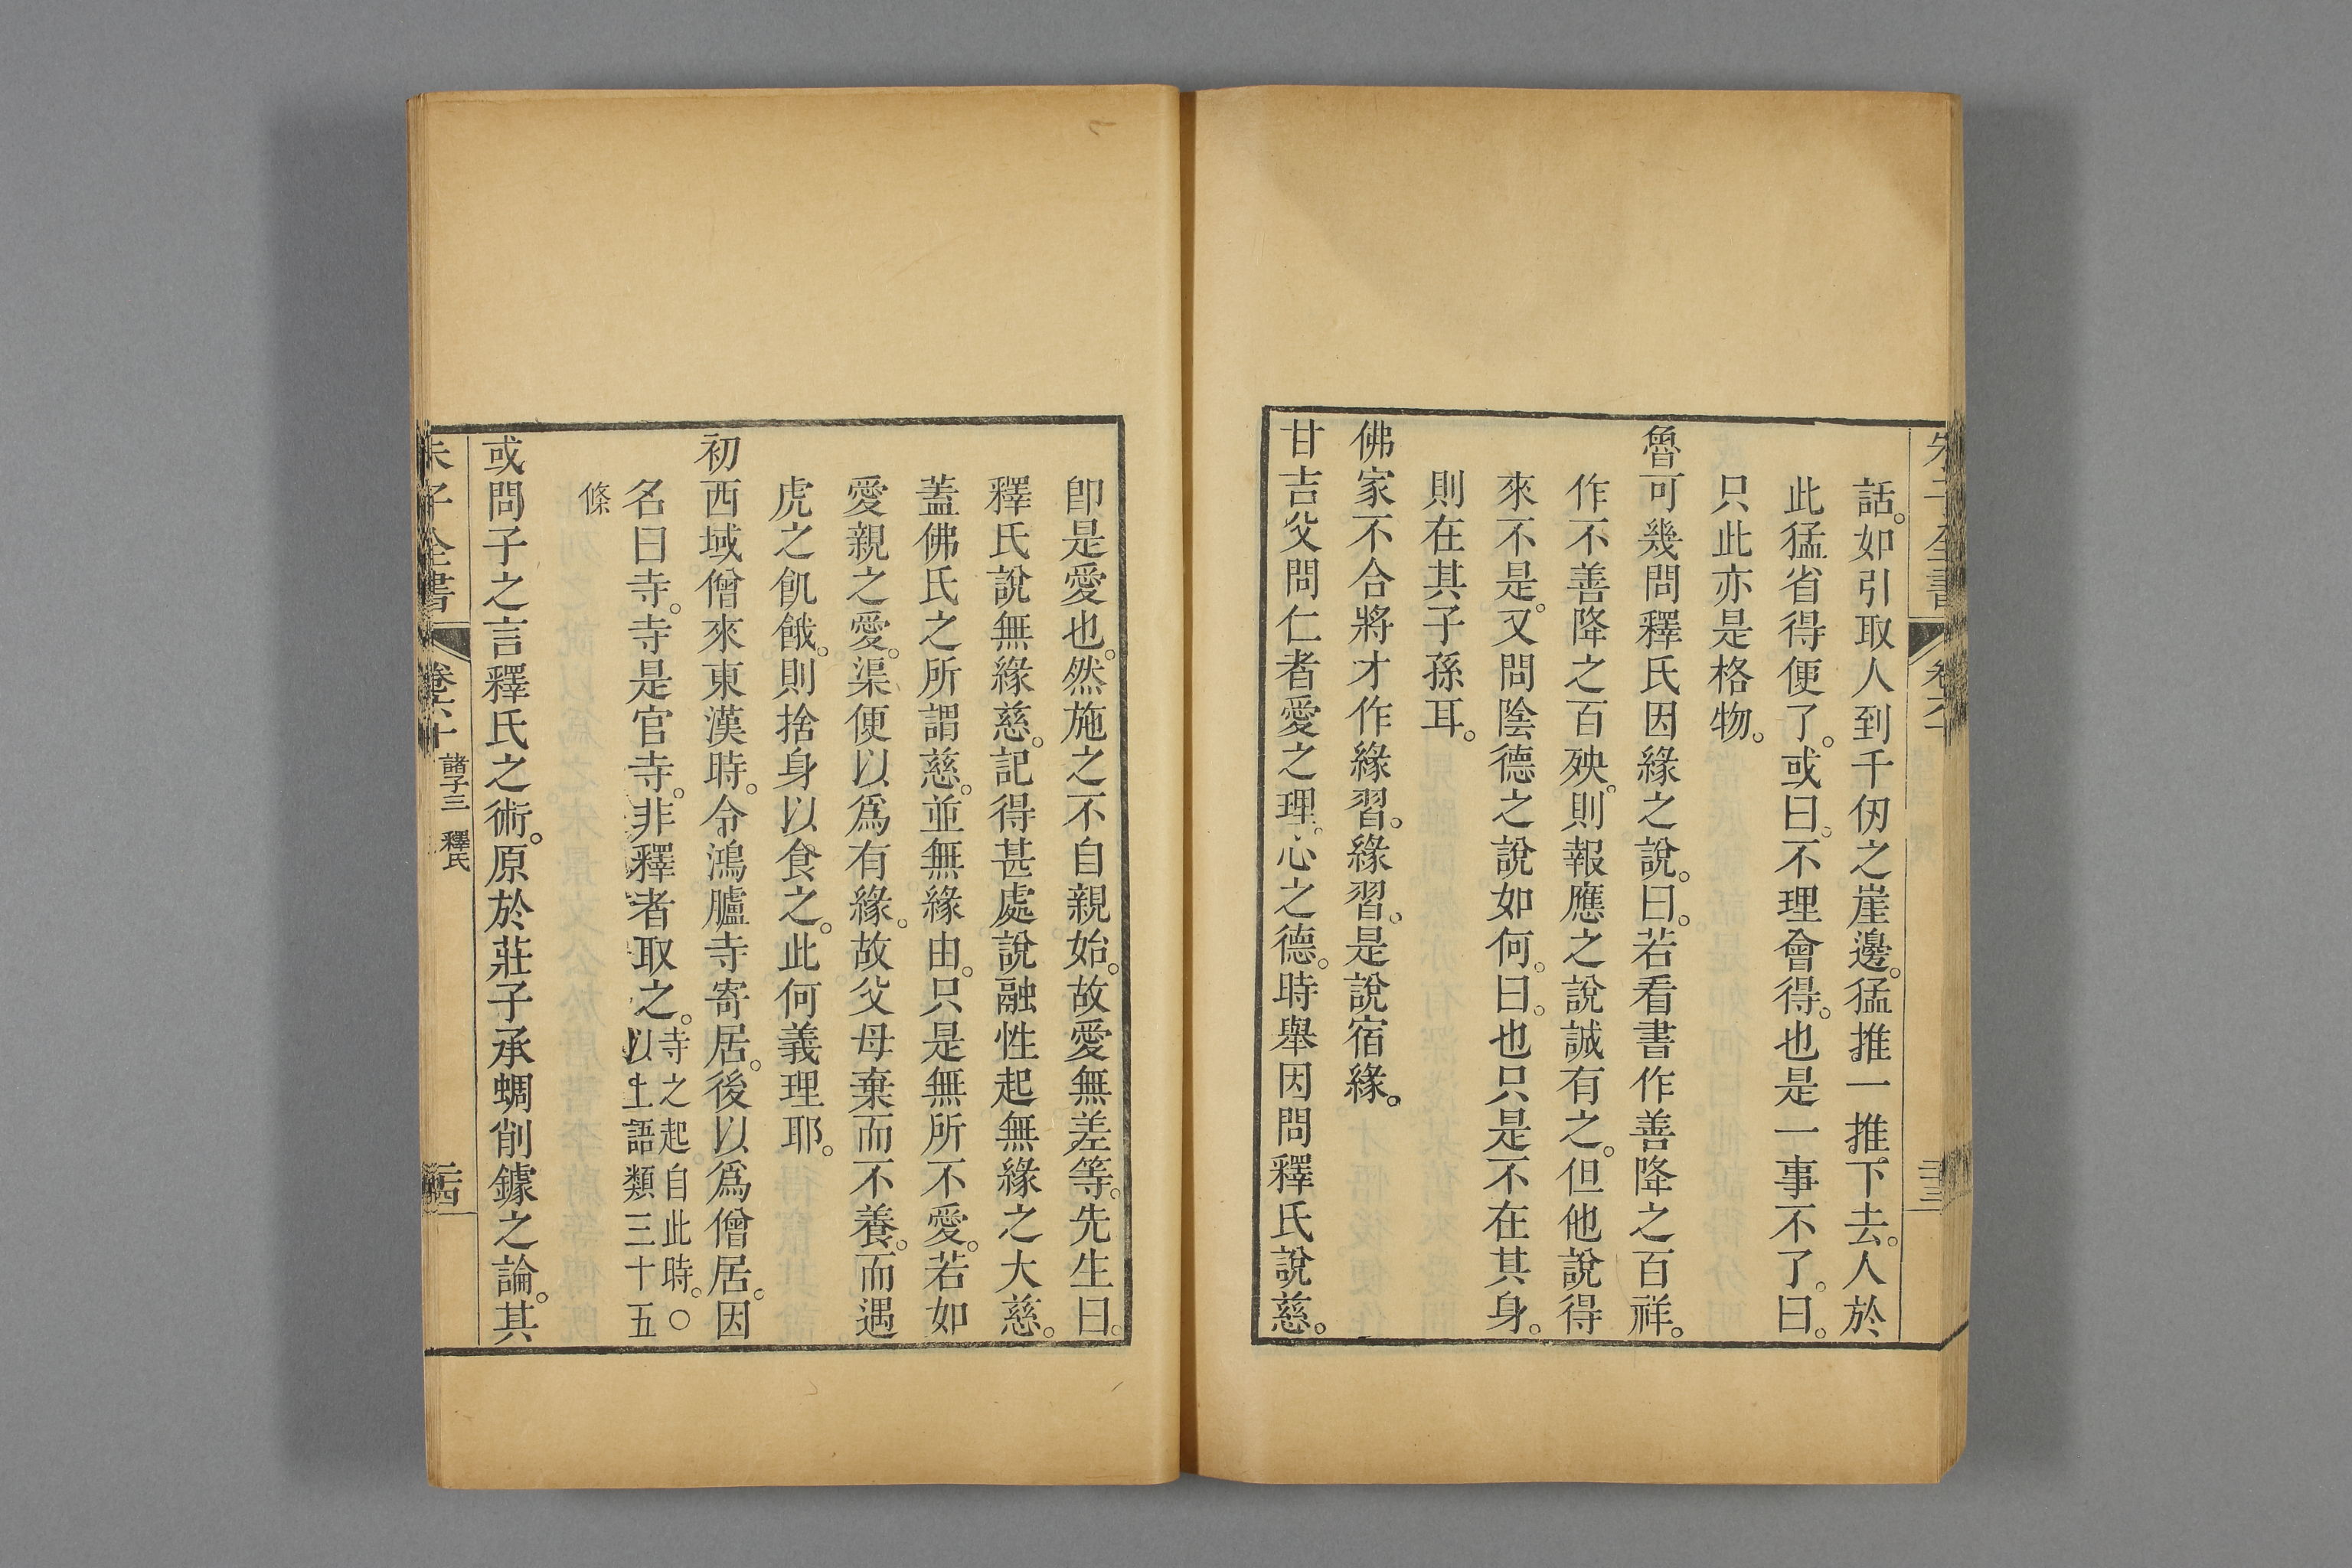 話。如引取人到千仞之崖邊。猛推一推下去。人於
此猛省得便了。或曰。不理會得。也是一事不了。曰。
只此亦是格物。
魯可幾問釋氏因緣之說。曰。若看書作善降之百祥。
作不善降之百殃。則報應之說誠有之。但他說得
來不是。又問陰德之說如何。曰。也只是不在其身。
則在其子孫耳。
佛家不合將才作緣習。緣習。是說宿緣。
甘吉父問仁者愛之理。心之德。時舉因問釋氏說慈。
卽是愛也。然施之不自親始。故愛無差等。先生曰。
釋氏說無緣慈。記得甚處說融性起無緣之大慈。
蓋佛氏之所謂慈。並無緣由。只是無所不愛。若如
愛親之愛。渠便以爲有緣。故父母棄而不養。而遇
虎之飢餓。則捨身以食之。此何義理耶。
初西域僧來東漢時。令鴻臚寺寄居。後以爲僧居。因
名曰寺。寺是官寺。非釋者取之。寺之起自此時。○
以上語類三十五
條
或問子之言釋氏之術。原於莊子承蜩削鐻之論。其
朱子全書 卷六十 諸子三 釋氏 二十四